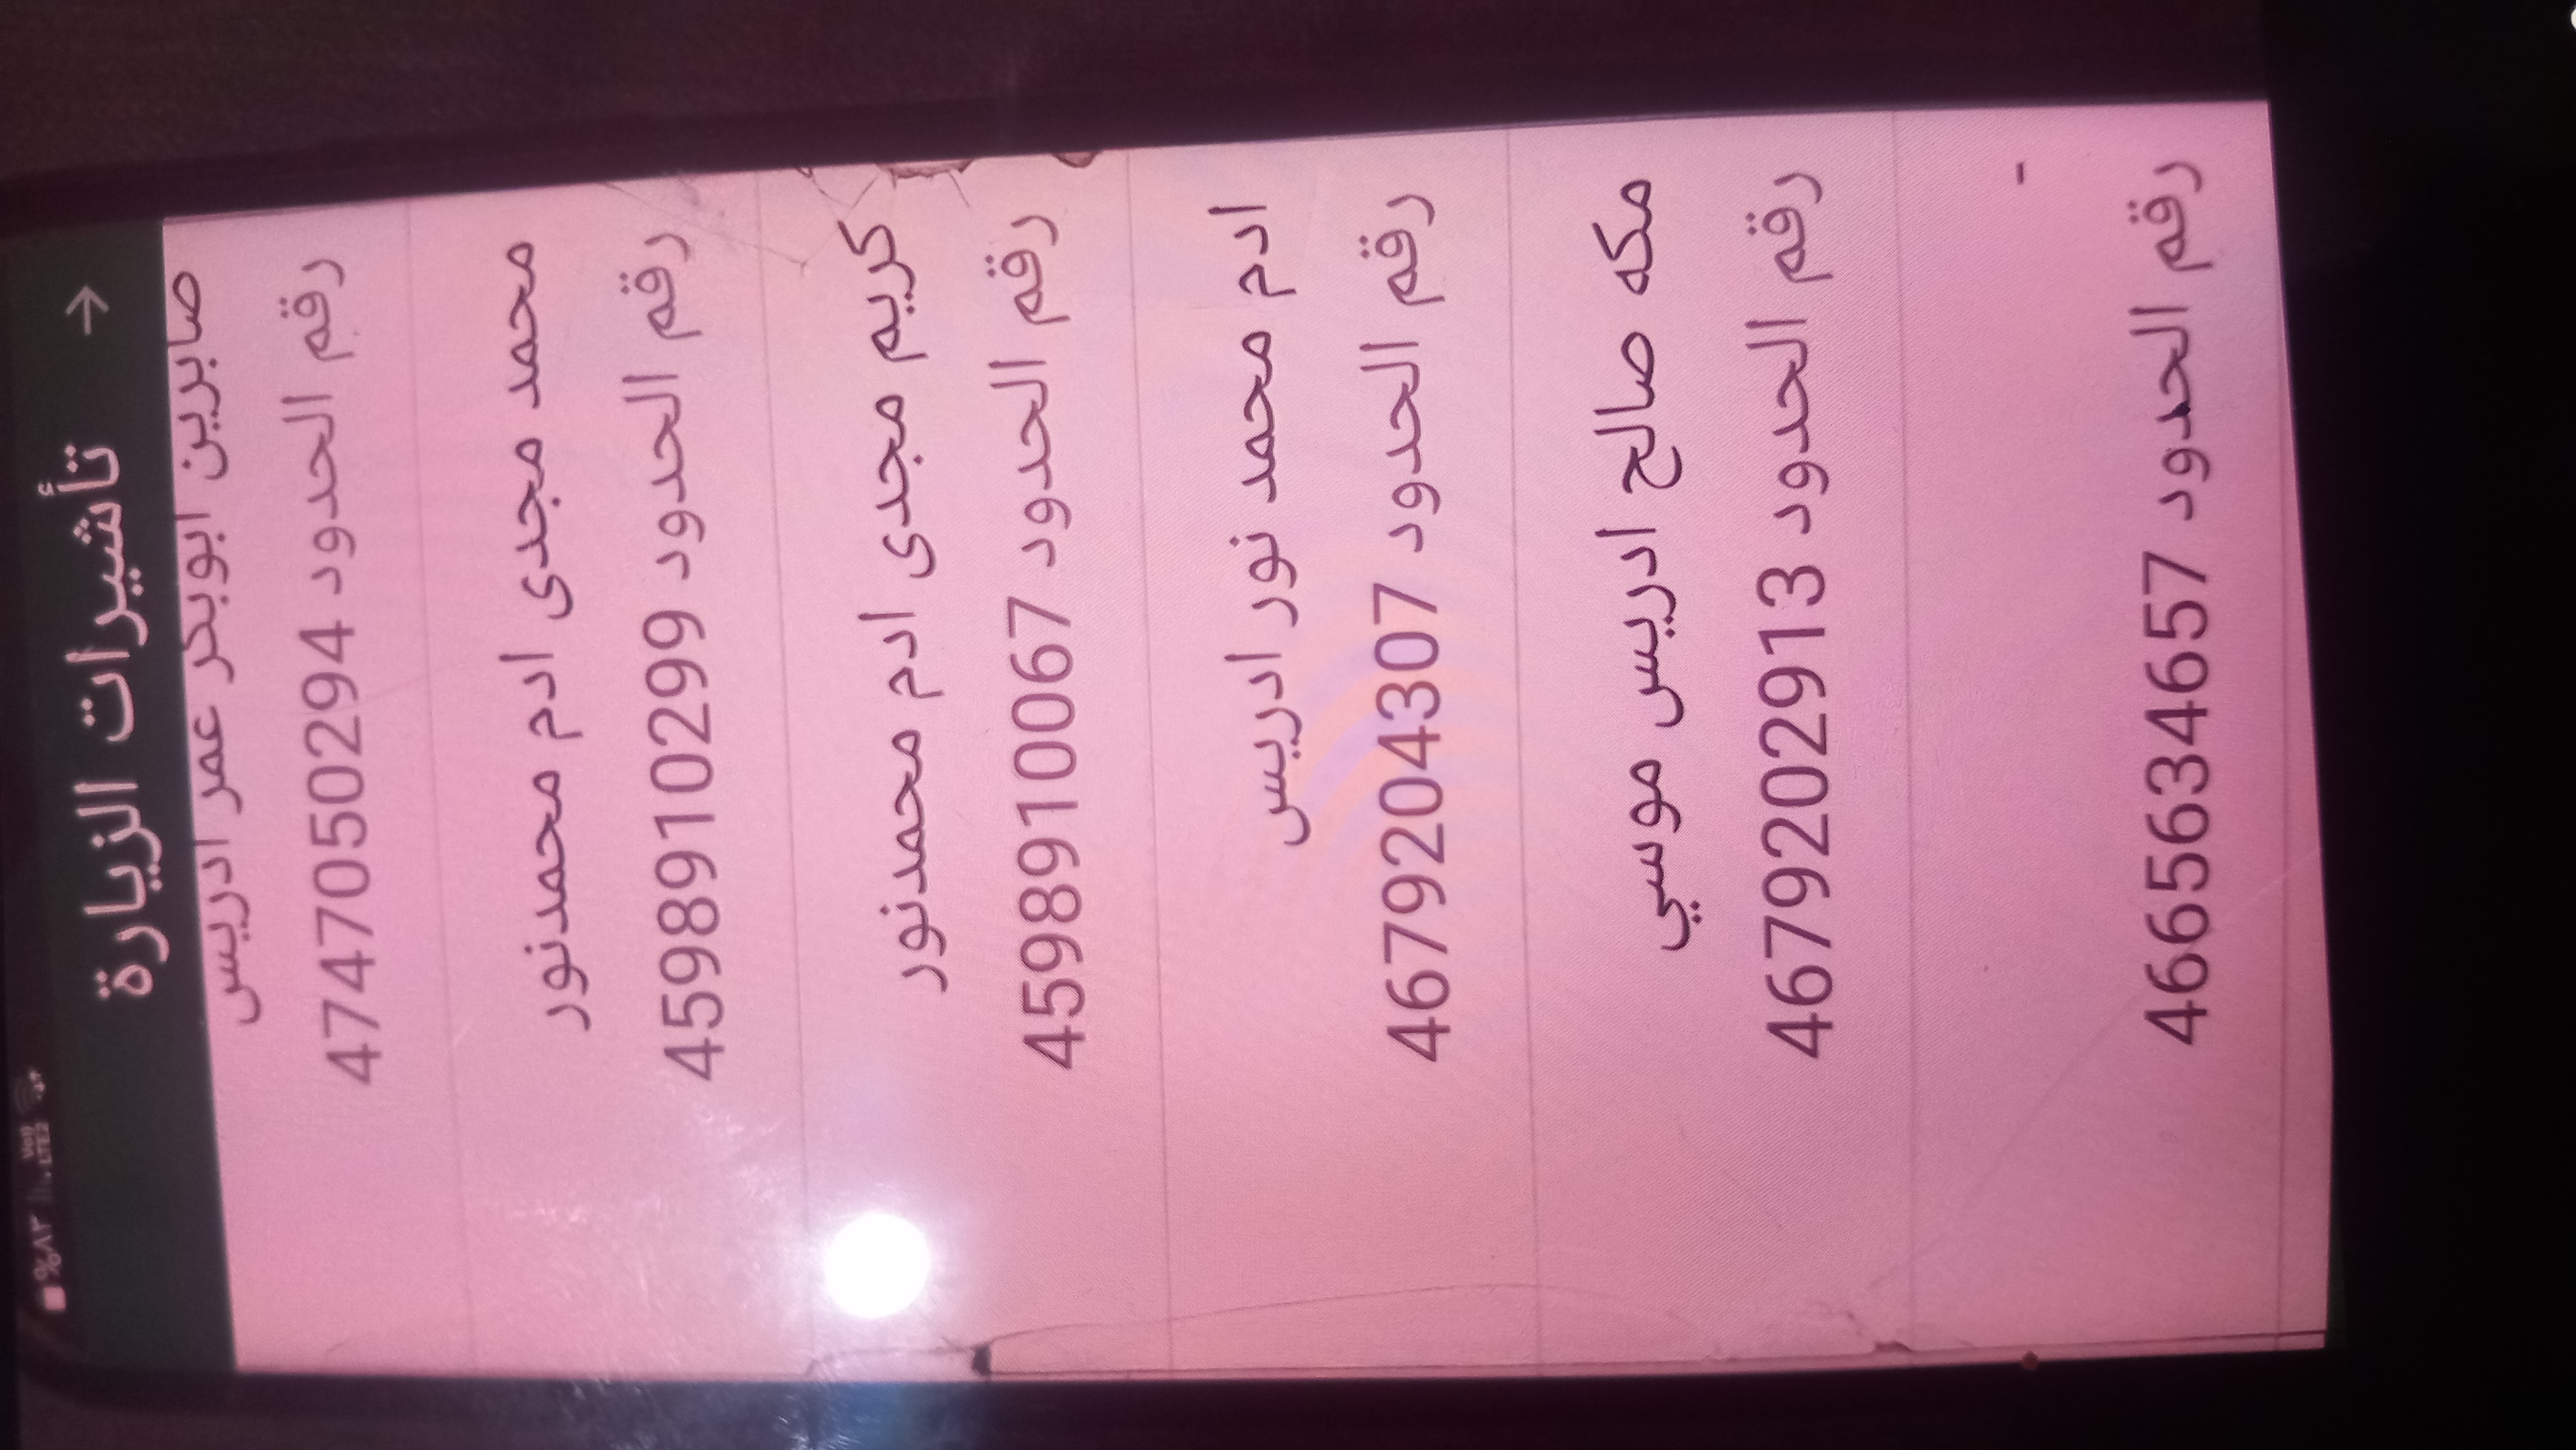 %٨٣
تأشيرات الزيارة
صابرين ابوبكر عمر ادريس
رقم الحدود 4747050294
محمد مجدى ادم محمدنور
رقم الحدود 4598910299
كريم مجدى ادم محمدنور
رقم الحدود 4598910067
ادم محمد نور ادريس
رقم الحدود 4679204307
مكه صالح ادريس موسي
رقم الحدود 4679202913
-
رقم الحدود 4665634657